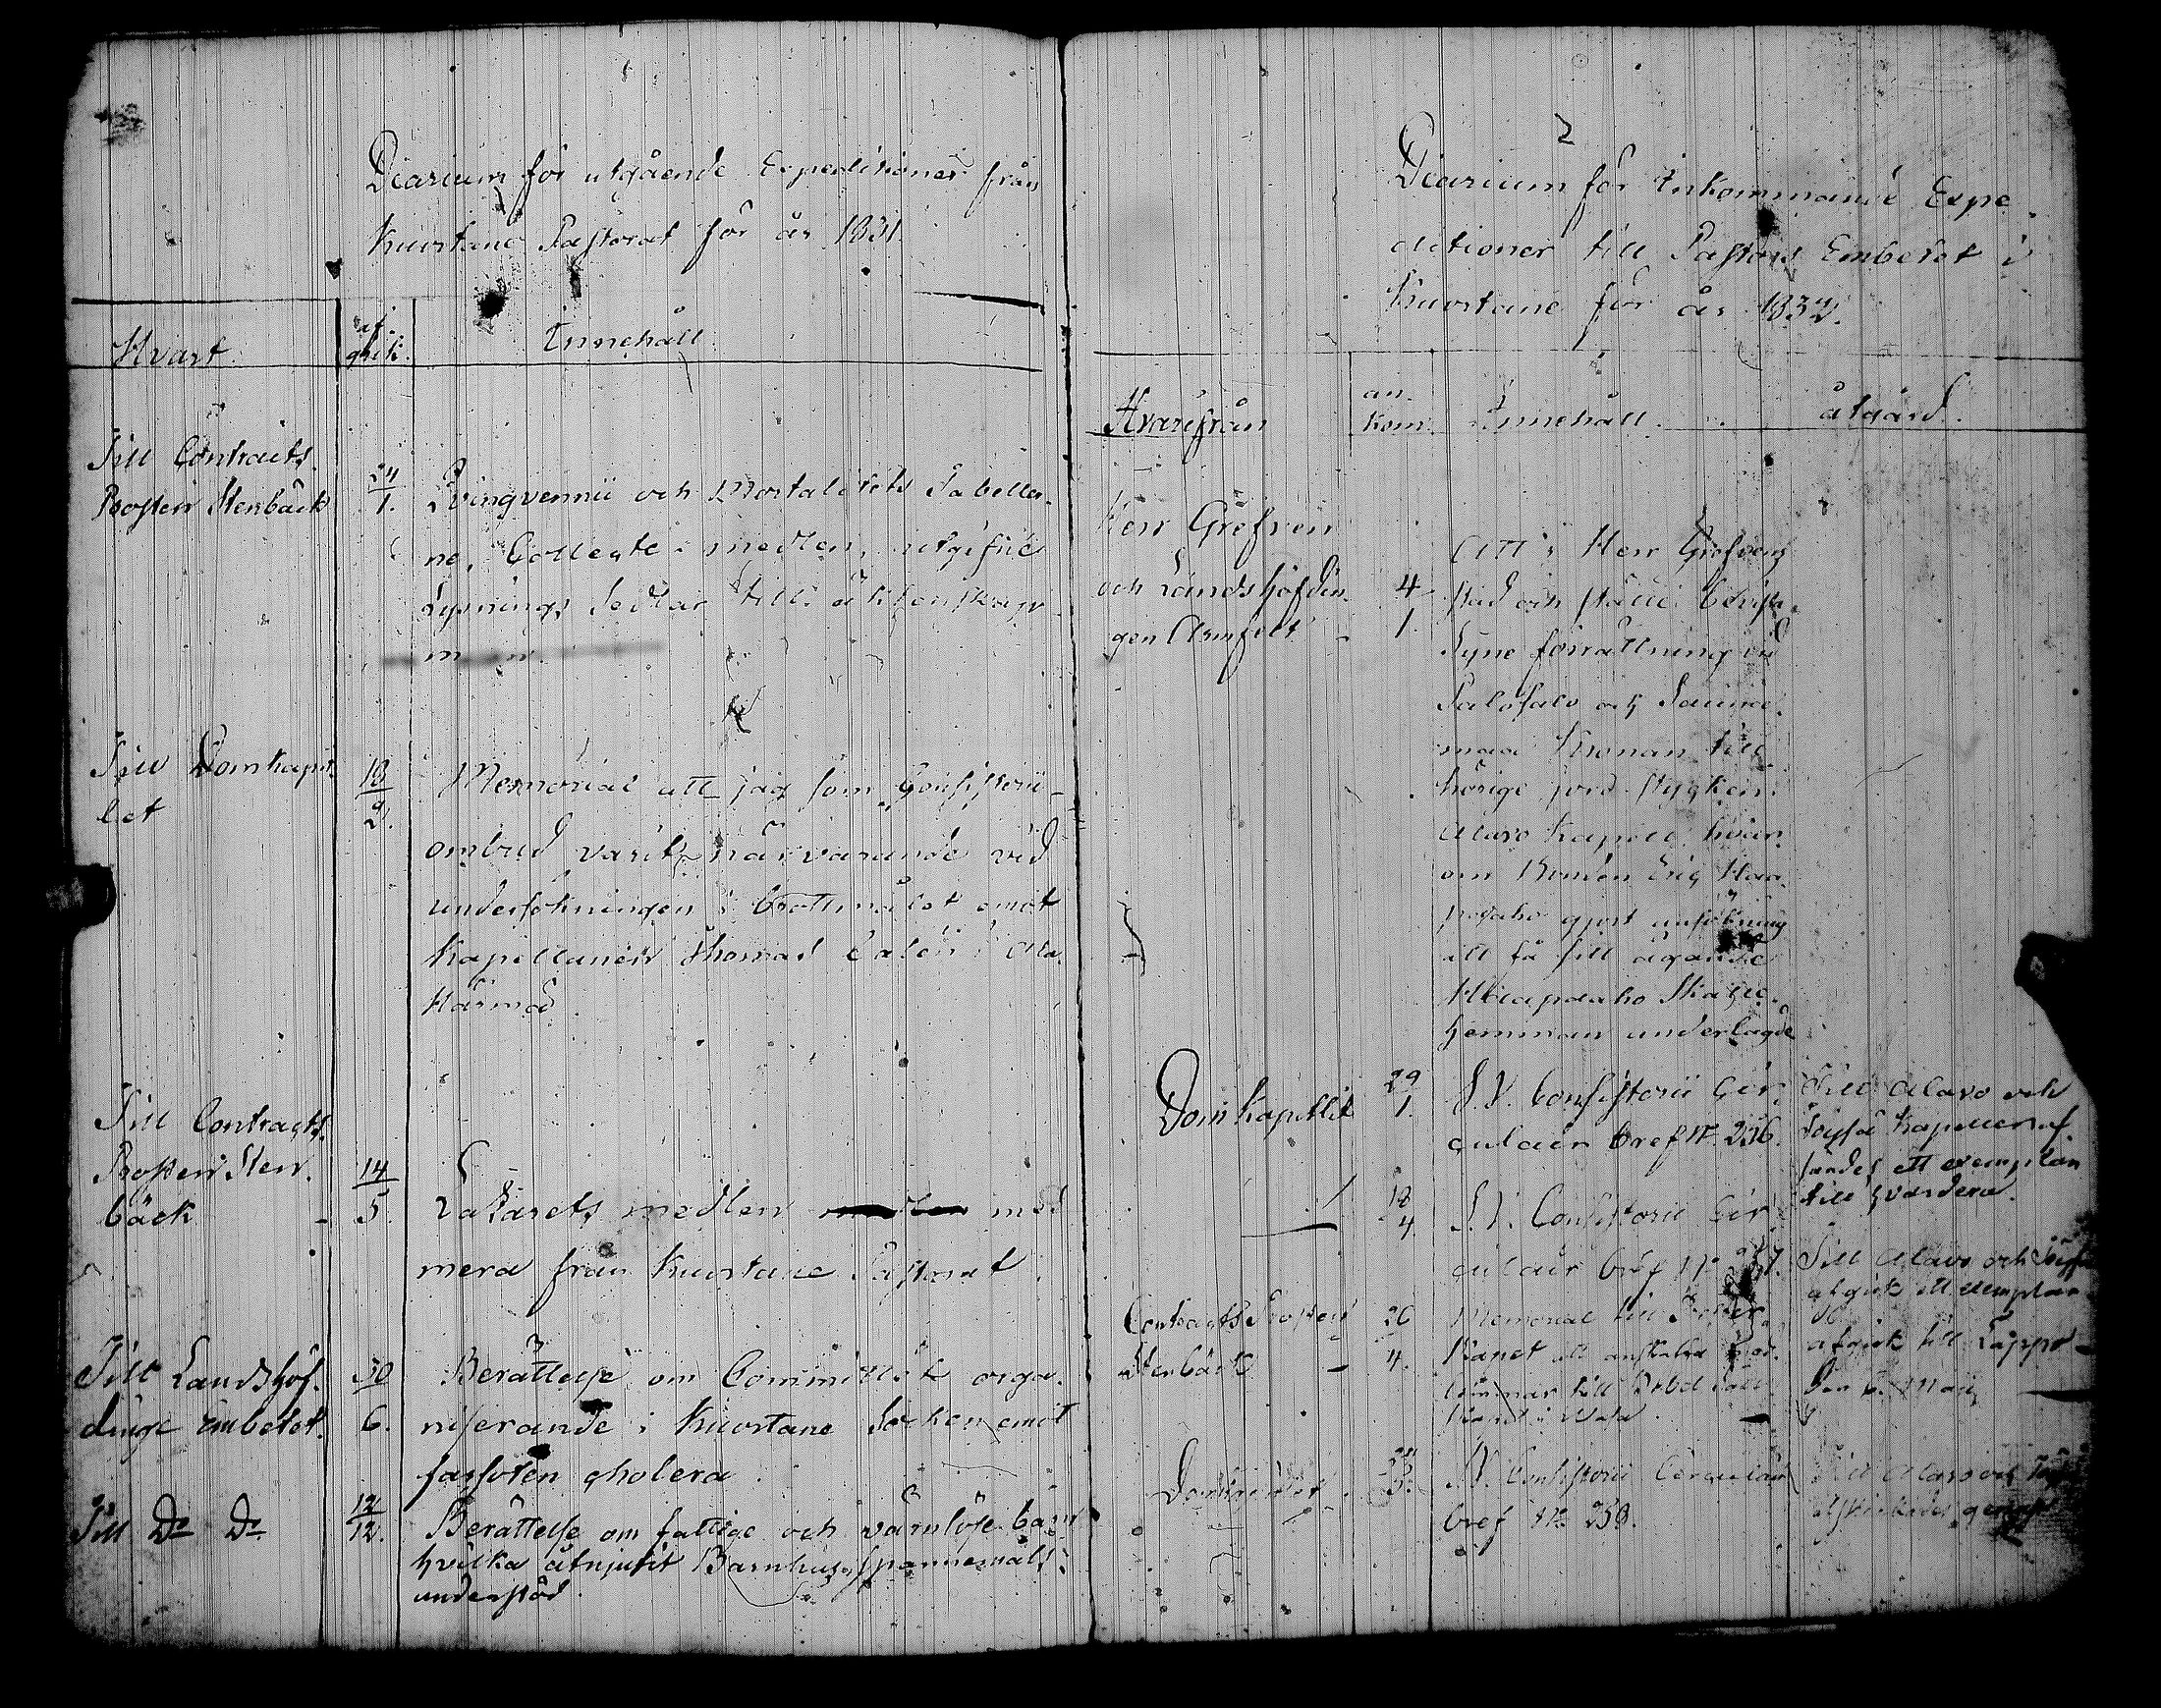 Diarium för utgående Expeditioner från
Kuortane Pastorat för år 1831.
Hvart
af-
gick.
Innehåll
Till Contracts
Prosten Stenbäck
24/1.
Qvinqvennii och Mortalitets Tabeller-
ne, Collecte-medlen, utgifne
Lysnings Sedlar till äktenskap
Till Domkapit-
let
18/2.
Memorial att jag som Consistorii
ombud varit närvarande vid
undersökningen i brottmålet emot
Kapellanen Thomas Calen i Ala-
Härmä.
Till Contracts
Prosten Sten-
bäck
14/5.
Lazarets medlen med
mera från Kuortane Pastorat.
Till Landshöf-
dinge Embetet.
30/6.
Berättelse om Committéns orga-
niserande i Kuortane Socken emot
farsoten cholera.
Till Do Do
12/12.
Berättelse om fattige och värnlöse barn
hvilka åtnjutit Barnhus spannemåls
understöd.
2
Diarium för Inkommande Expe-
ditioner till Pastors Embetet i
Kuortane för år 1832.
Hvarifrån
an-
kom.
Innehåll.
åtgärd.
Herr Grefven
och Landshöfdin-
gen Armfelt
4/1.
Att i Herr Grefvens
stad och ställe bevista
Syne förrättning vid
Salosalo och
maa Kronan till-
hörige jord stycken i
Alavo Kapell, hvar-
om Bonden Eric Haa-
paaho gjort ansökning
att få till ägande
Haapaaho Skatte-
hemman underlagde
Domkapitlet
29/1.
S. V. Consistorii Cir-
culair bref No 256.
Till Alavo och
Töysä Kapeller af-
sändes ett exemplar
till hvardera.
18/4.
S. V. Consistorii Cir-
culair bref No 257.
Till Alavo och Töysä
afgick ett exemplar
Contracts Prosten
Stenbäck
26/4.
Memorial till
Kapet att anskaffa
till Bibel Säll-
skapet i Wasa.
afgick till Lappo
den 6. Maij
Domkapitlet.
S. V. Consistorii Circulair
bref No 258.
Till Alavo och Töysä
afskickades genast